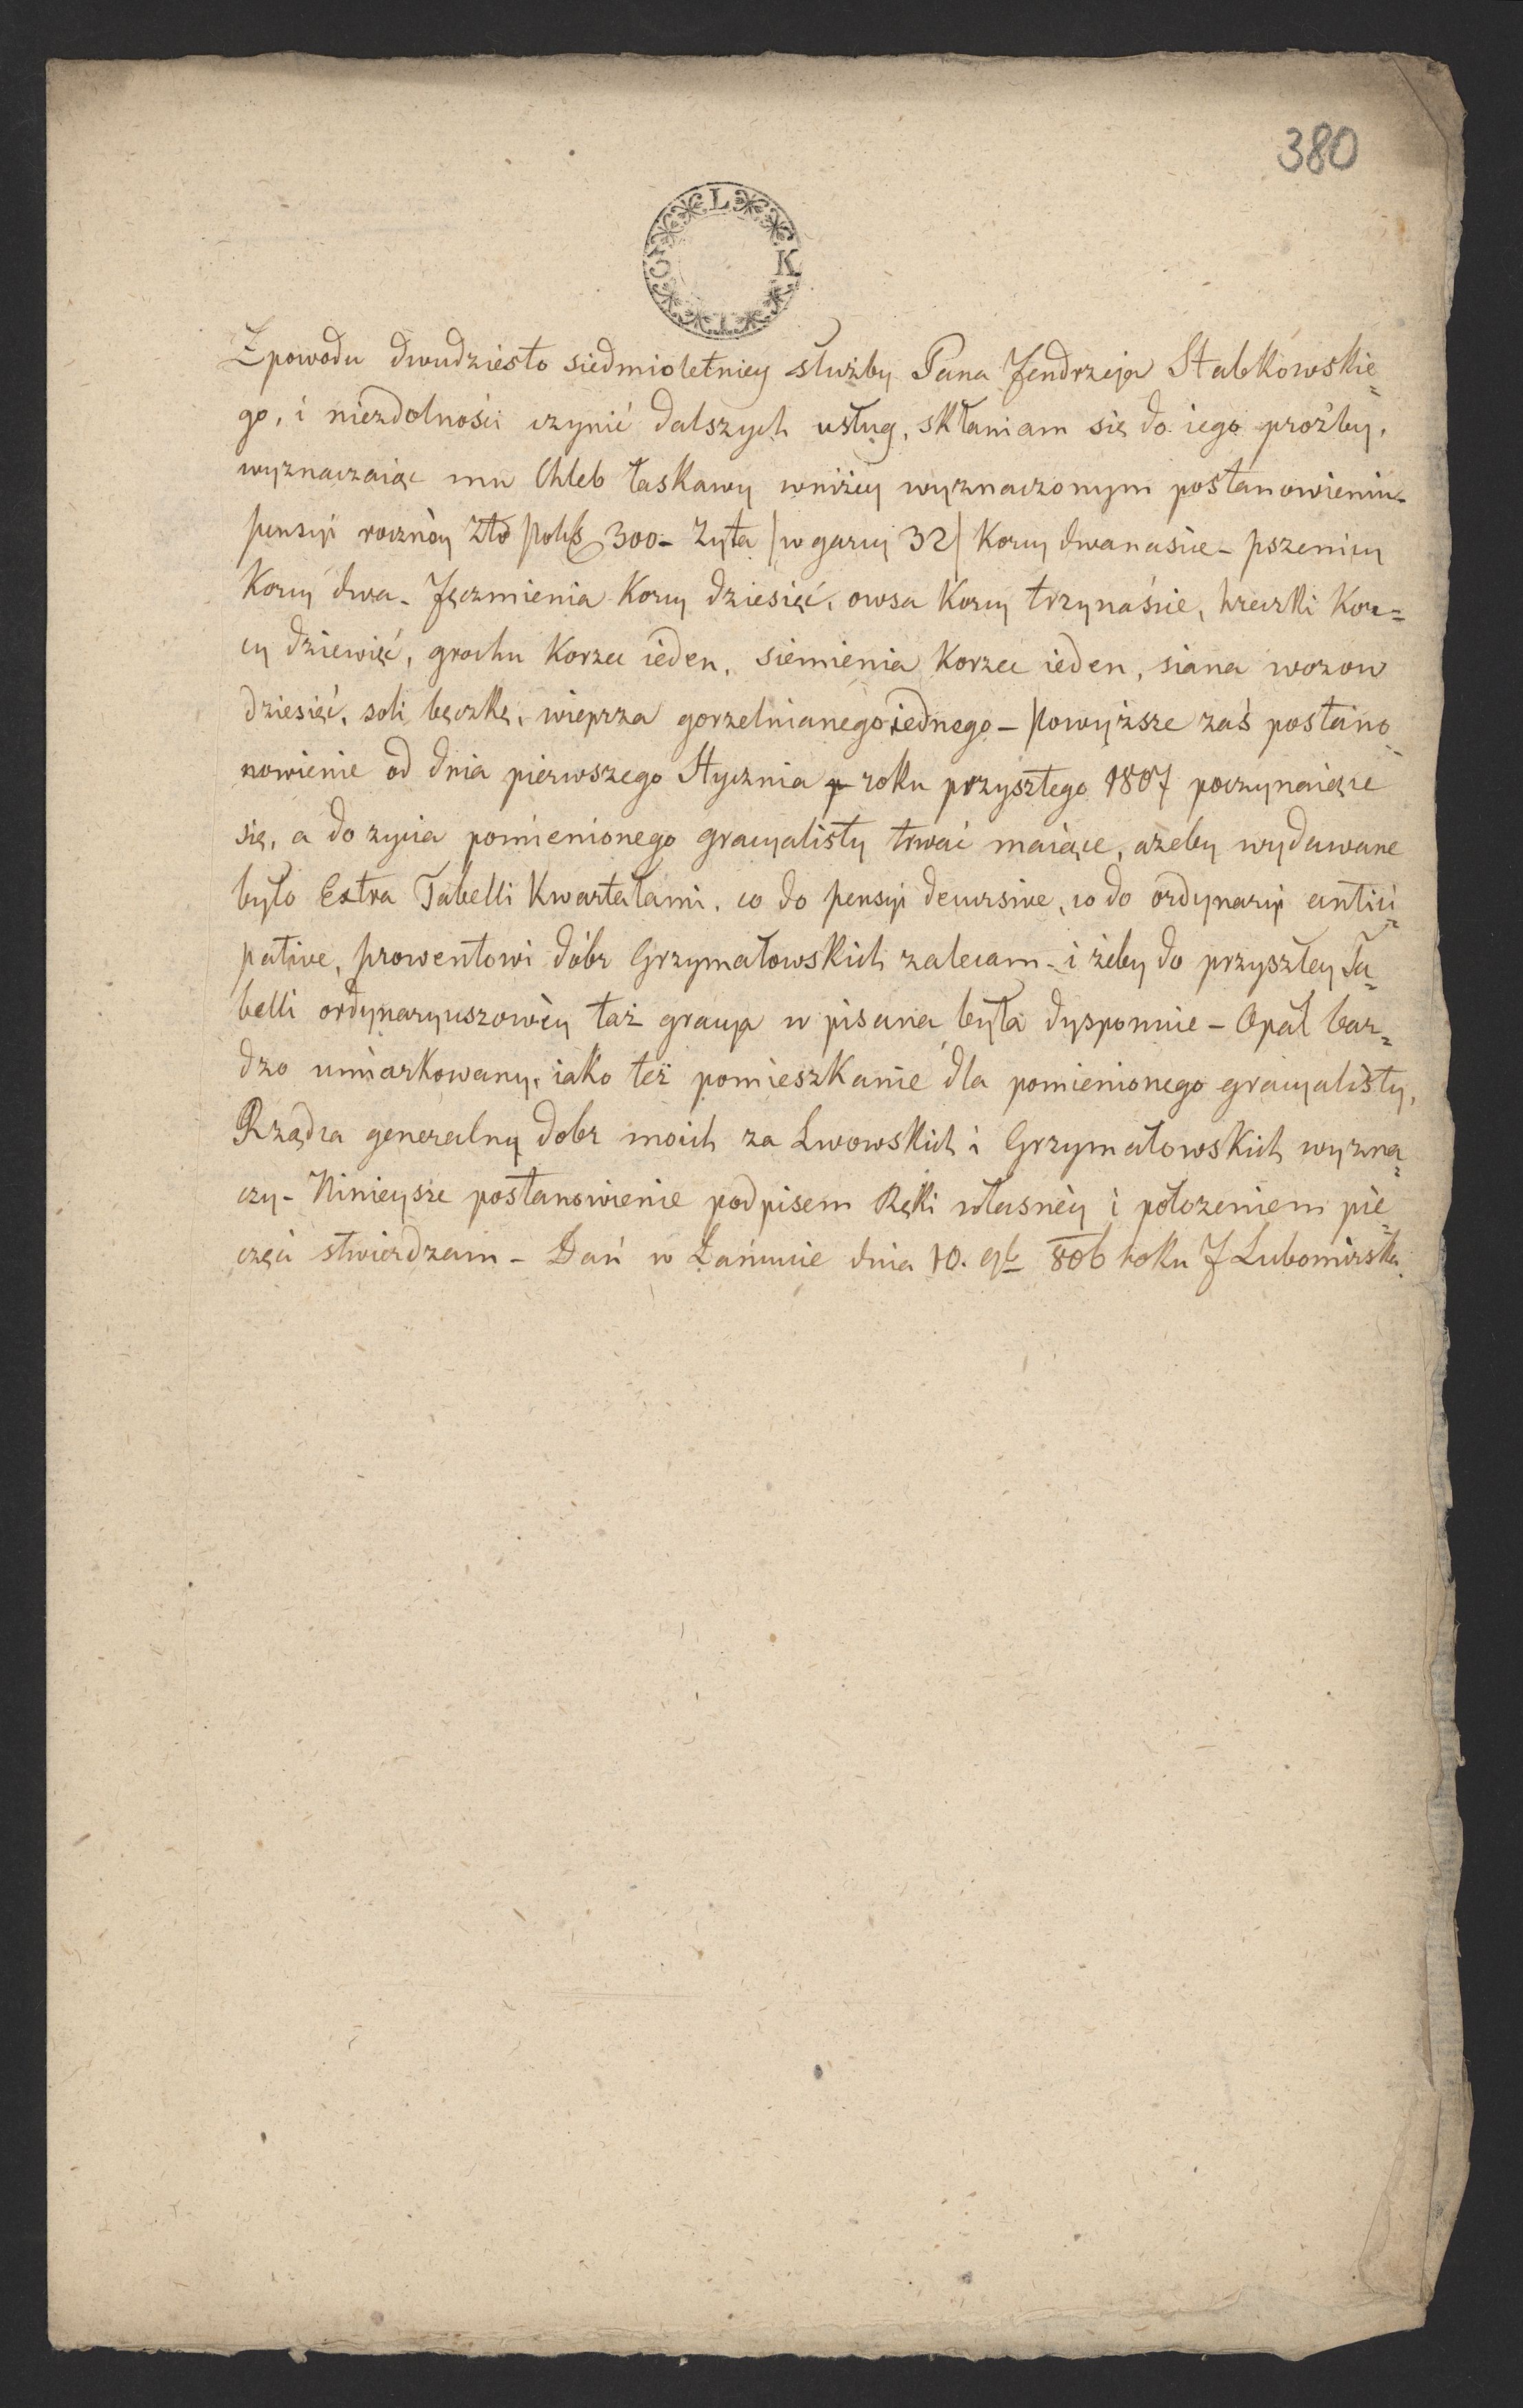 380
L K I 3
Z powodu dwudziesto siedmioletniey służby Pana Jendrzeja Stabkowskie=
go, i niezdolności czynić dalszych usług, skłaniam się do iego proźby,
wyznaczaiąc mu Chleb łaskawy w niżey wyznaczonym postanowieniu-
pensyi rocznèy Złt Polls 300- Żyta /w garcy 32/ Korcy dwanaście- pszenicy
Korcy dwa- Jęczmienia Korcy dziesięć, owsa Korcy trzynaście, hreczki Kor=
cy dziewięć, grochu Korzec ieden, siemienia Korzec ieden, siana wozow
dziesięć, soli beczkę, wieprza gorzelnianego iednego- Powyższe zaś postano=
nowienie od dnia pierwszego Stycznia p roku przyszłego 1807 poczynaiące
się, a do zycia pomienionego gracyalisty trwać maiące, ażeby wydawane
było Extra Tabelli Kwartałami, co do pensyi decursive, co do ordynaryi antici=
pative, prowentowi dóbr Grzymałowskich zalecam- i żeby do przyszłey Ta=
belli ordynaryuszowèy taż gracya w pisana była dysponuie- Opał bar=
dzo umiarkowany, iako też pomieszkanie dla pomienionego gracyalisty,
Rządca generalny dobr moich za Lwowskich i Grzymałowskich wyzna=
czy- Ninieysze postanowienie podpisem Ręki własnèy i położeniem pie=
częci stwierdzam- Dań w Łańcucie dnia 10. 9b 806 roku J Lubomirska